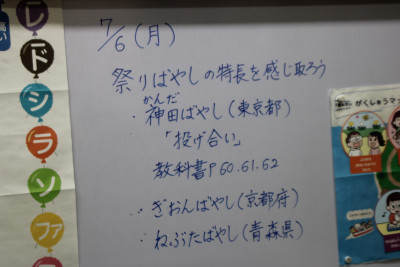 7/6(月)
祭りばやしの特長を感じ取ろう
かんだ
・神田ばやし(東京都)
「投げ合い」
教科書P60.61.62
・ぎおんばやし(京都府)
・ねぶたばやし(青森県)
レ
ド
シ
ラ
ソ
ファ
がくしゅうマ